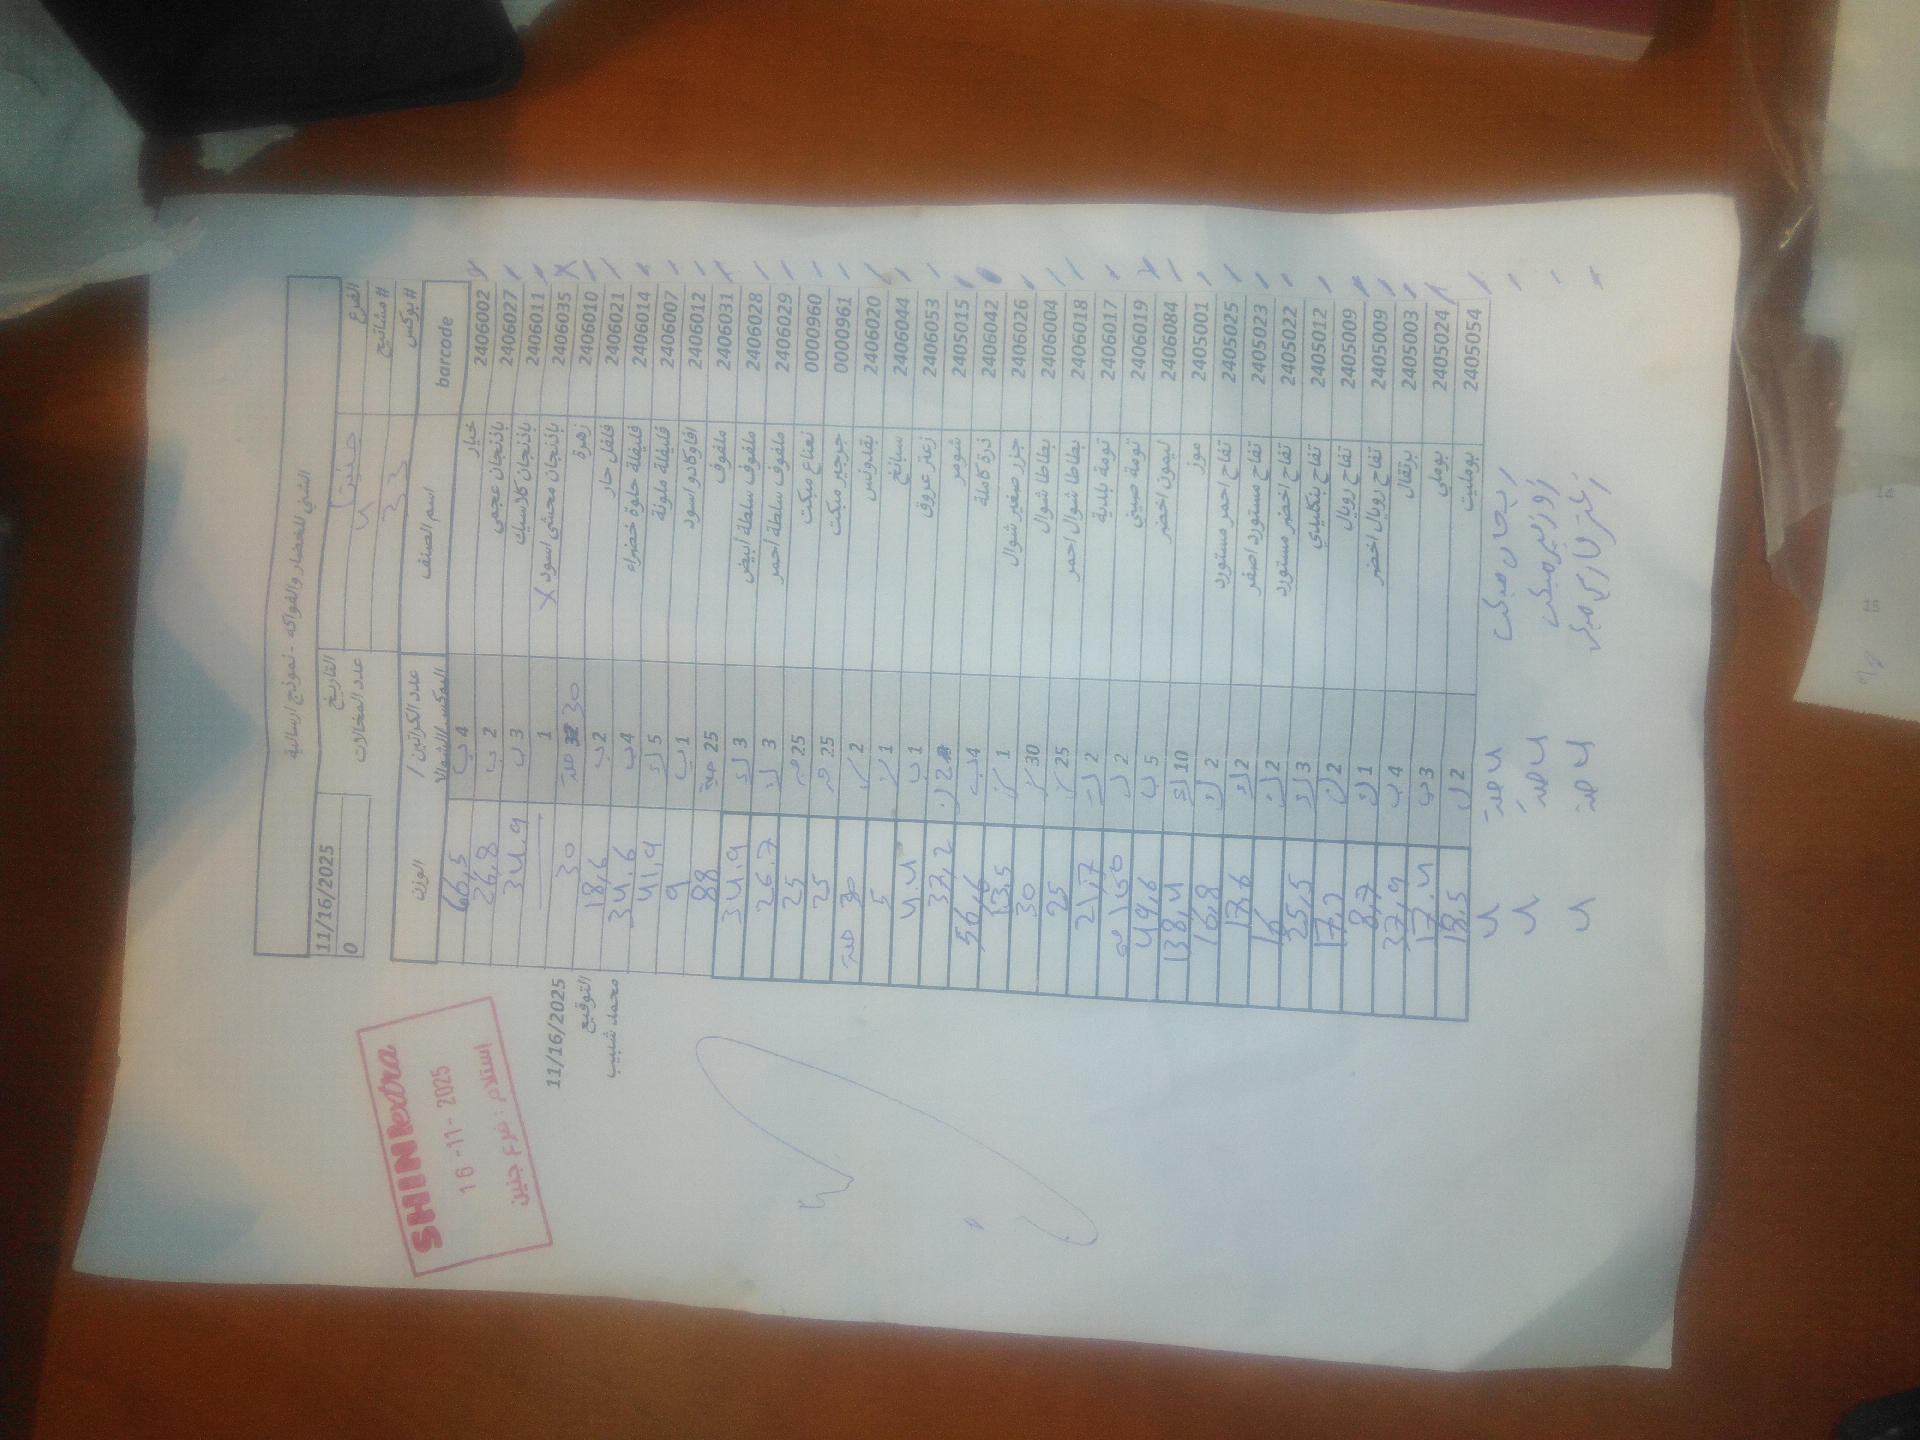 الشني للخضار والفواكه - نموذج ارسالية
الفرع جنين التاريخ 11/16/2025
# مشاتيح 4 عدد المخالات 0
# بوكس 33
barcode اسم الصنف عدد الكراتين / البوكس / الشوالات الوزن
2406002 خيار 4 ب 66,5
2406027 باذنجان عجمي 2 ب 26,8
2406011 باذنجان كلاسيك 3 ب 34.9
2406035 باذنجان محشي اسود X 1
2406010 زهرة 30 30
2406021 فلفل حار 2 ب 18,6
2406014 فليفلة حلوة خضراء 4 ب 34.6
2406007 فليفلة ملونة 5 ك 41,9
2406012 افاوكادو اسود 1 ب 9
2406031 ملفوف 25 حبة 88
2406028 ملفوف سلطة أبيض 3 ك 34.9
2406029 ملفوف سلطة احمر 3 ك 26.7
0000960 نعناع مبكت 25 25
0000961 جرجير مبكت 25 25
2406020 بقدونس 2 30
2406044 سبانخ 1 5
2406053 زعتر عروق 1 ب 4.4
2405015 شومر 2 37,2
2406042 ذرة كاملة 4 ب 56,6
2406026 جزر صغير شوال 1 13,5
2406004 بطاطا شوال 30 30
2406018 بطاطا شوال احمر 25 25
2406017 تومة بلدية 2 21,7
2406019 تومة صيني 2
2406084 ليمون اخضر 5 ب 49,6
2405001 موز 10 138,4
2405025 تفاح احمر مستورد 2 16,8
2405023 تفاح مستورد اصفر 2 17.6
2405022 تفاح اخضر مستورد 2 16
2405012 تفاح بنكليدي 3 25,5
2405009 تفاح رويال 2 17,2
2405009 تفاح رويال اخضر 1 8,7
2405003 برتقال 4 ب 37,9
2405024 بوملي 3 ب 17.4
2405054 بومليت 2 18,5
ريحان مبكت 4 4
روزماري مبكت 4 4
زعتر فارسي مبكت 4 4
11/16/2025
التوقيع
محمد شبيب
SHINI extra
16-11-2025
استلام : فرع جنين